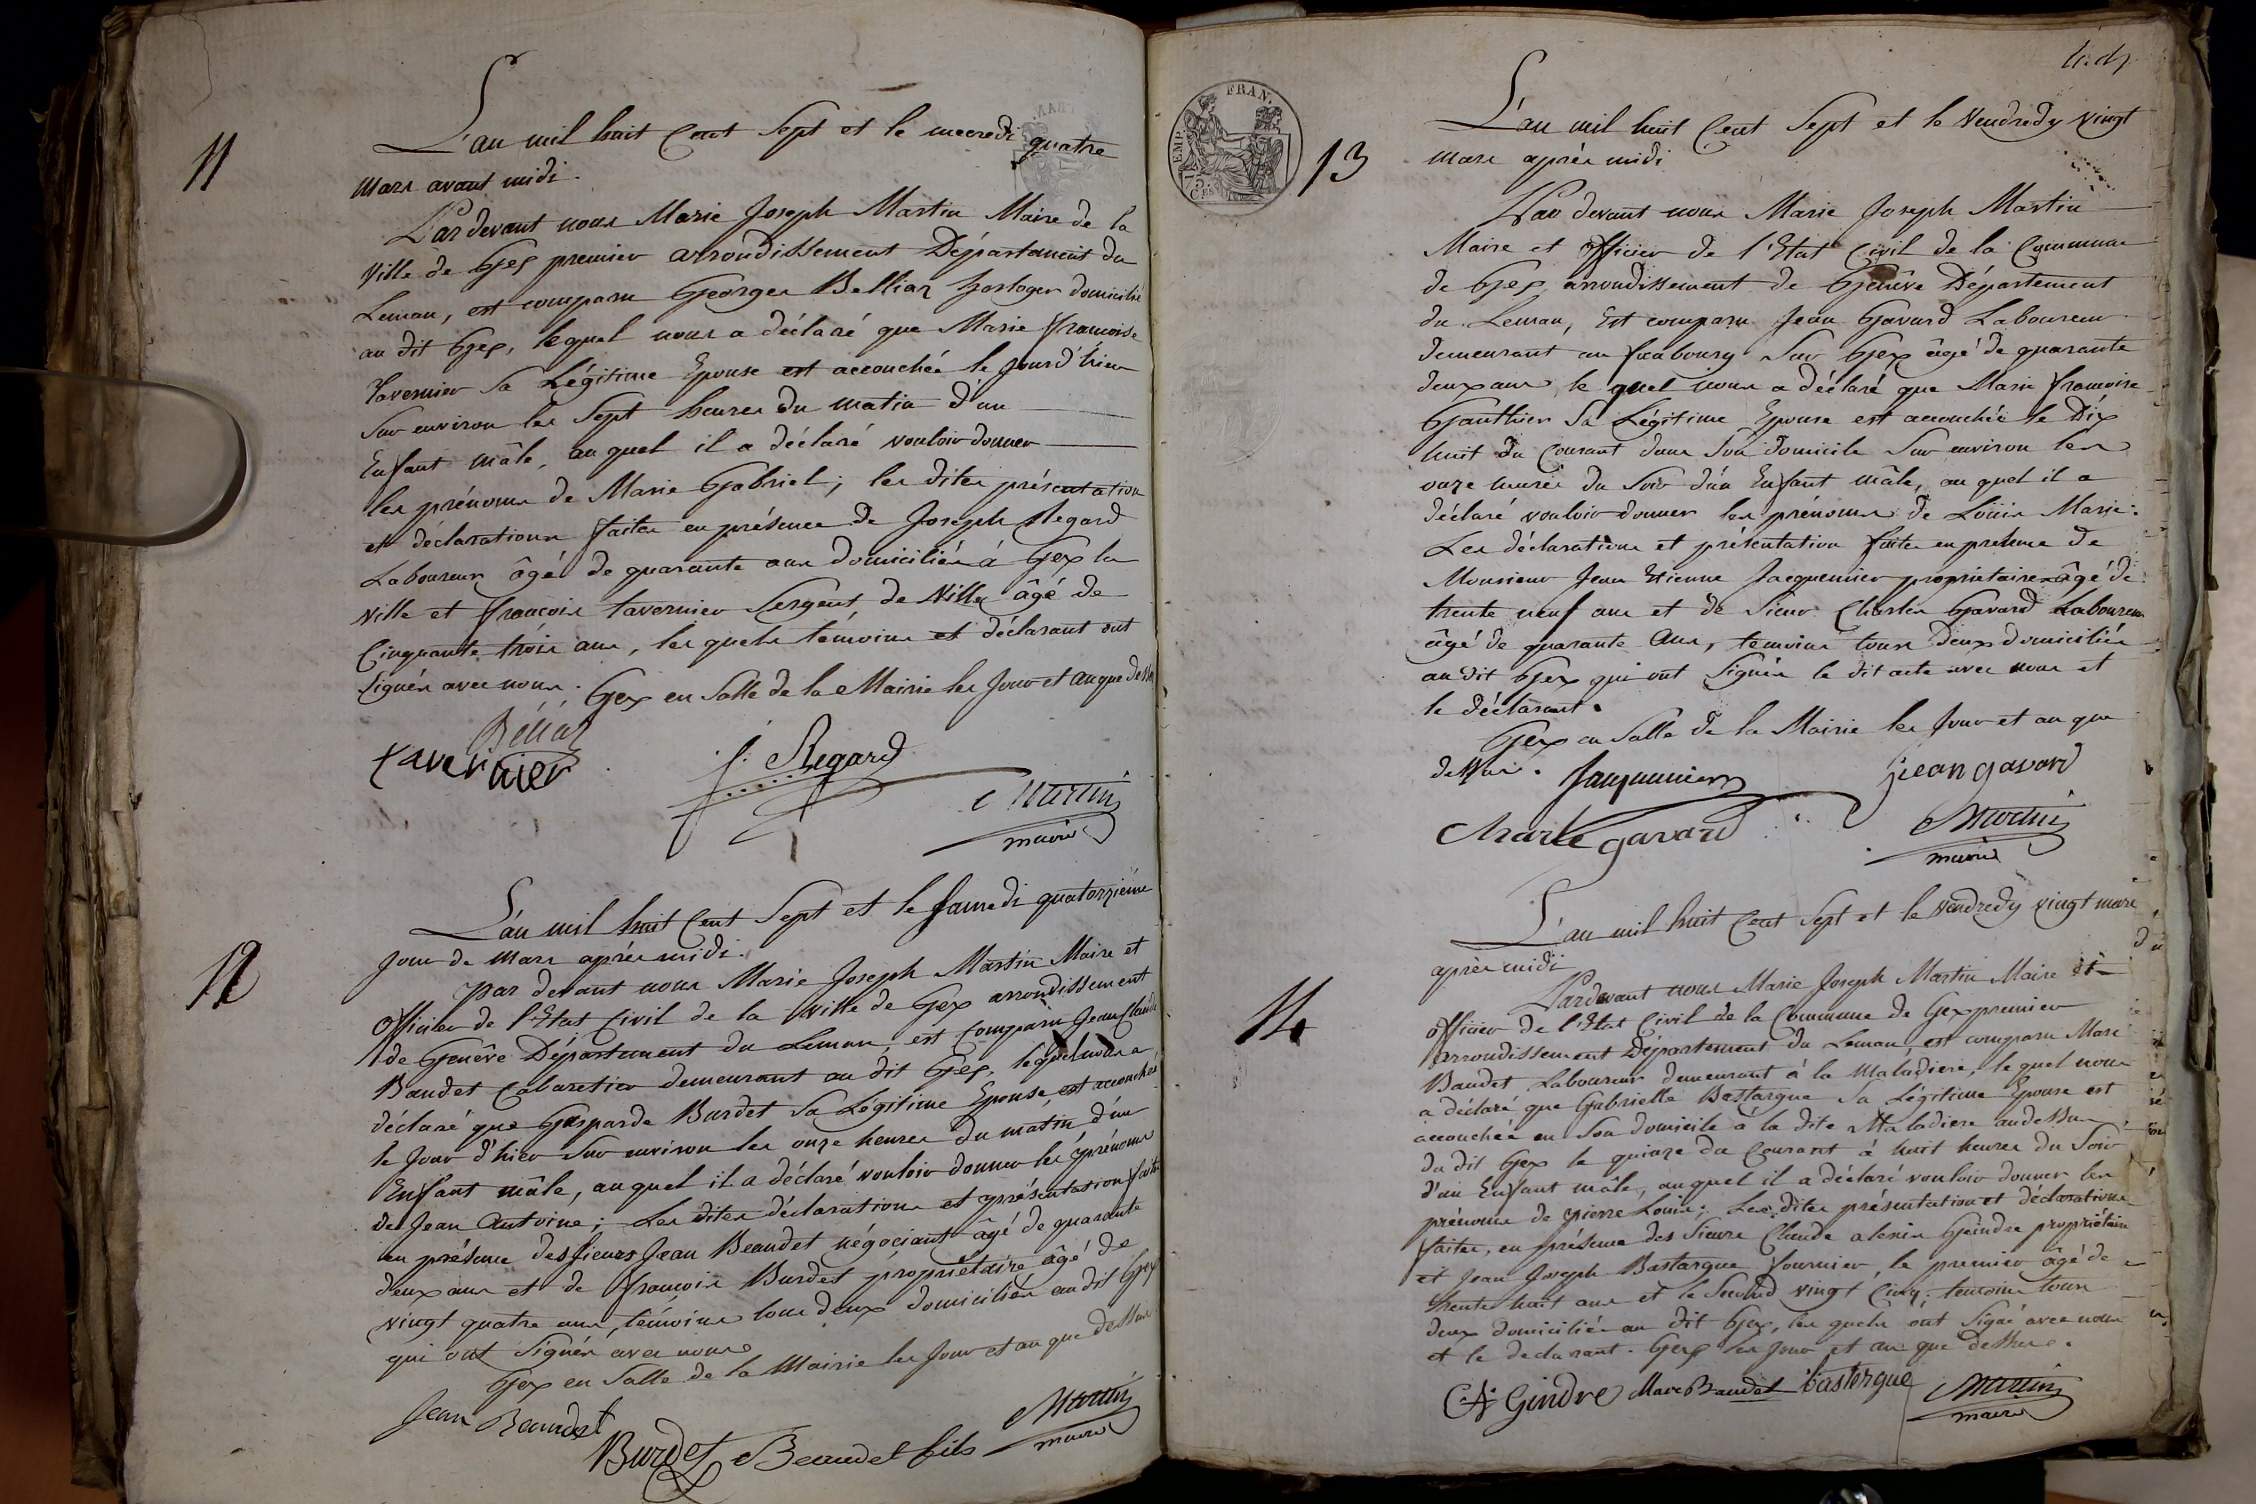 11
L'an mil huit Cent Sept et le mecredi quatre
Mars avant midi.
Par devant nous Marie Joseph Martin Maire de la
Ville de Gex premier arrondissement Département du
Leman, est comparu George Belliaz horloger domicilié
au dit Gex, lequel nous a déclaré que Marie françoise
Tavernier Sa Légitime Epouse est accouchée le Jourd'hier
Sur environ les Sept heures du matin d'un
Enfant mâle, au quel il a déclaré vouloir donner
les prénoms de Marie Gabriel; les dites présentation
et déclarations faites en présence de Joseph Regard
Laboureur âgé de quarante ans domiciliés à Gex la
Ville et françois tavernier Sergent de Ville âgé de
Cinquante trois ans, les quels témoins et déclarant ont
Signés avec nous. Gex en Salle de la Mairie les Jour et an que dessus
Béliaz
tavernier
J. Regard
Martin
maire
12
L'an mil huit Cent Sept et le Samedi quatorzième
Jour de Mars après midi.
Par devant nous Marie Joseph Martin Maire et
Officier de l'Etat Civil de la Ville de Gex arrondissement
de Genêve Département du Leman, est Comparu Jean Claude
Baudet Cabaretier demeurant au dit Gex, lequel nous a
déclaré que Gasparde Burdet Sa Légitime Epouse, est accouchée
le Jour d'hier Sur environ les onze heures du matin d'un
Enfant mâle, au quel il a déclaré vouloir donner les prénoms
de Jean Antoine; Les dites déclarations et présentation faites
en présence des Sieurs Jean Beaudet négociant âgé de quarante
deux ans et de françois Burdet propriétaire âgé de
vingt quatre ans, témoins tous deux domiciliés au dit Gex
qui ont Signés avec nous
Gex en Salle de la Mairie les Jour et an que dessus
Jean Beaudet
Burdet
Beaudet fils
Martin
maire
1R EMP. FRAN.
13
L'an mil huit Cent Sept et le Vendredy vingt
Mars après midi
Par devant nous Marie Joseph Martin
Maire et officier de l'Etat Civil de la Commune
de Gex arrondissement de Genêve Département
du Leman, Est comparu Jean Gavard Laboureur
demeurant au fauboury Sur Gex âgé de quarante
deux ans, le quel nous a déclaré que Marie françoise
Gauthier Sa Légitime Epouse est accouchée le Dix
huit du Courant dans Son domicile Sur environ les
onze heures du Soir d'un Enfant mâle, au quel il a
déclaré vouloir donner les prénoms de Louis Marie.
Les déclarations et présentation faites en présence de
Monsieur Jean Etienne Jacquemier propriétaire âgé de
trente neuf ans et de Sieur Charles Gavard Laboureur
âgé de quarante Ans, témoins tous deux domiciliés
au dit Gex qui ont Signés le dit acte avec nous et
le déclarant.
Gex en Salle de la Mairie les Jour et an que
dessus.
Jacquemier
jean gavard
Charle gavard
Martin
maire
14
L'an mil huit Cent Sept et le Vendredy vingt mars
après midi
Pardevant nous Marie Joseph Martin Maire et
officier de l'Etat Civil de la Commune de Gex premier
arrondissement Département du Leman, est comparu Marc
Baudet Laboureur demeurant à la Maladiere, le quel nous
a déclaré que Gabrielle Bastargue Sa Légitime Epouse est
accouchée en Son domicile à la dite Maladiere au dessus
du dit Gex le quinze du Courant à huit heures du Soir
d'un Enfant mâle, au quel il a déclaré vouloir donner les
prénoms de pierre Louis; Les dites présentation et déclarations
faites, en présence des Sieurs Claude alexis Geindre propriétaire
et Jean Joseph Bastargue fournier, le premier âgé de
trente huit ans et le Second vingt Cinq: témoins tous
deux domiciliés au dit Gex, les quels ont Signé avec nous
et le declarant. Gex les Jour et an que dessus.
CA Gindre
Marc Baudet
bastergue
Martin
maire